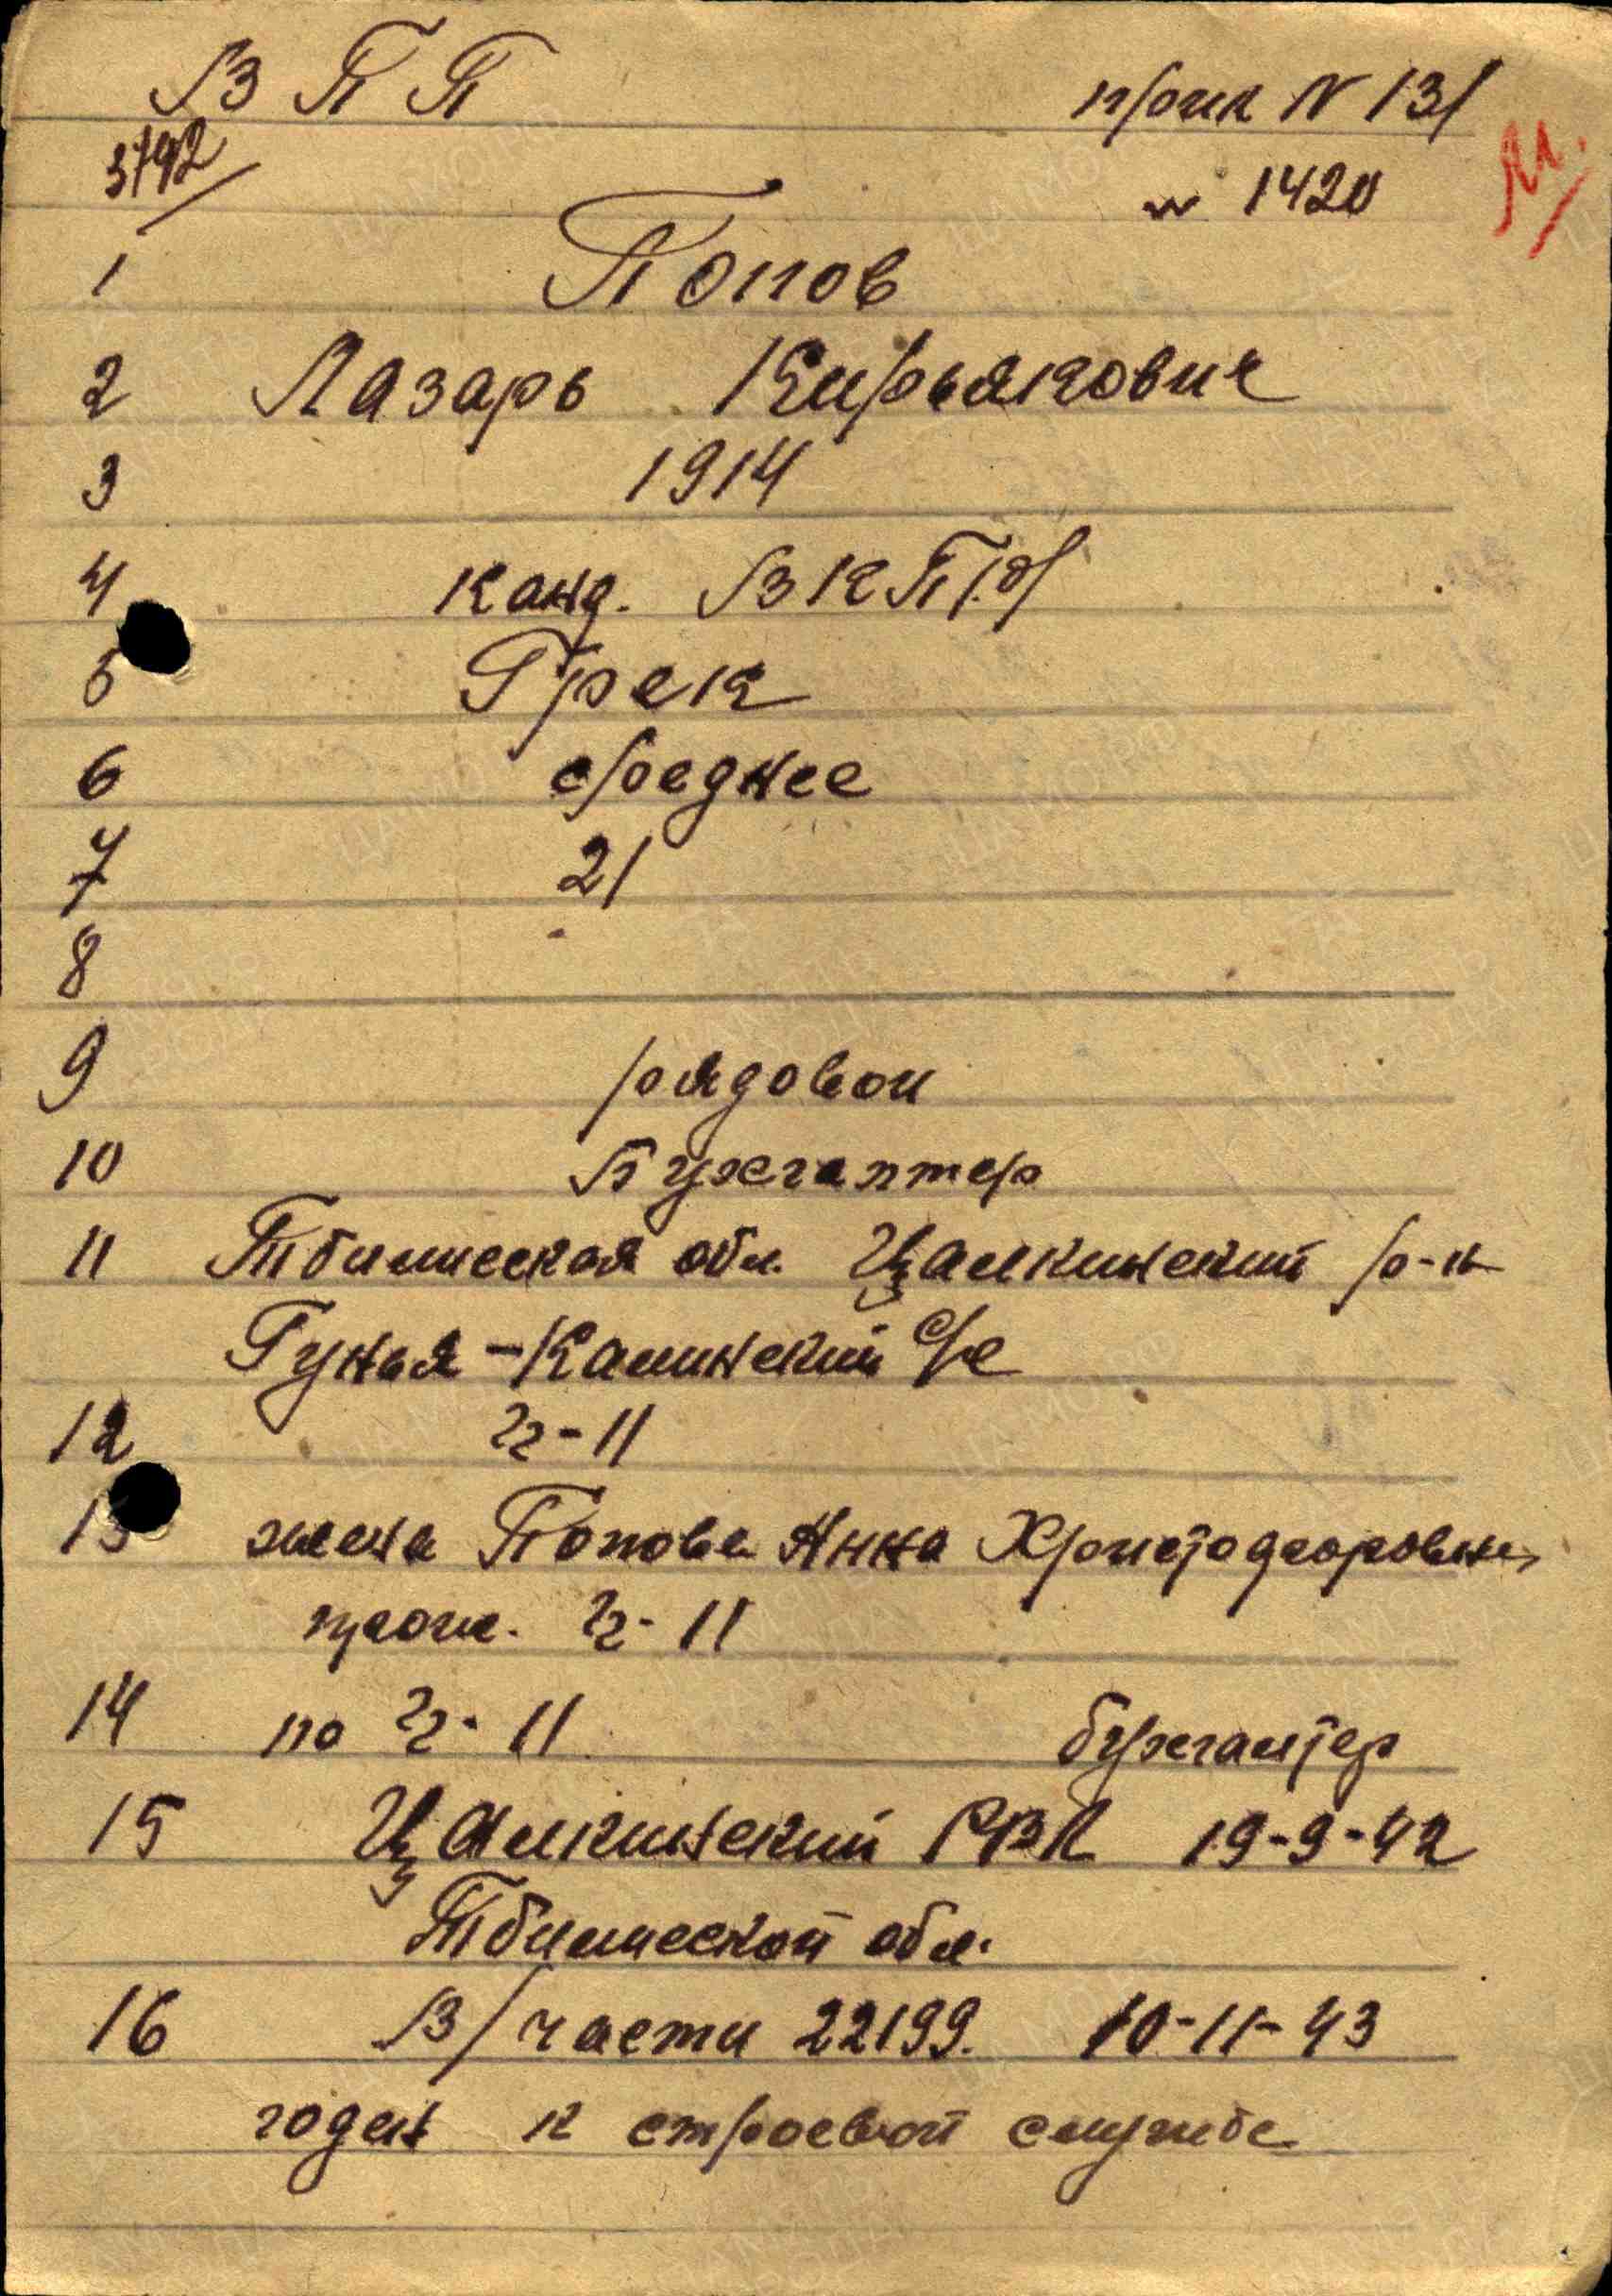 ВПП прик N 131
3792 N 1420
1 Попов
2 Лазарь Кирьякович
3 1914
4 канд. ВКП(б)
5 Грек
6 среднее
7 21
8
9 рядовои
10 Бухгалтер
11 Тбилисская обл. Цалкинский р-н
Гунья-Калинский с/с
12 гр-11
13 жена Попова Анна Христодоровна
прож. гр-11
14 по гр-11 бухгалтер
15 Цалкинский РВК 19-9-42
Тбилисской обл.
16 В/части 22199. 10-11-43
годен к строевой службе